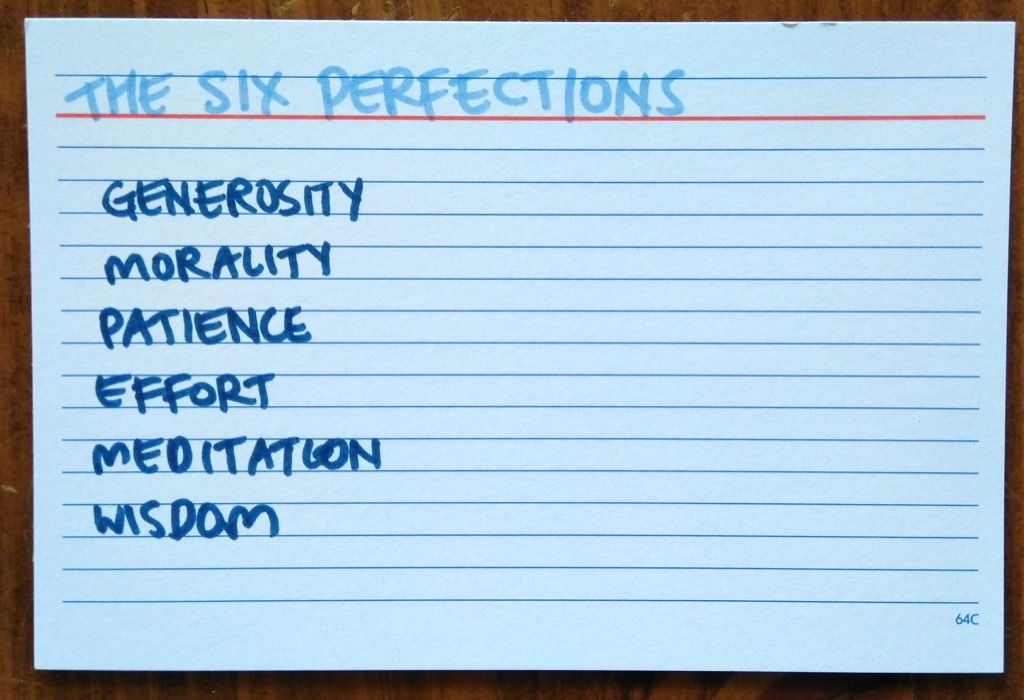 THE SIX PERFECTIONS
GENEROSITY
MORALITY
PATIENCE
EFFORT
MEDITATION
WISDOM
64C